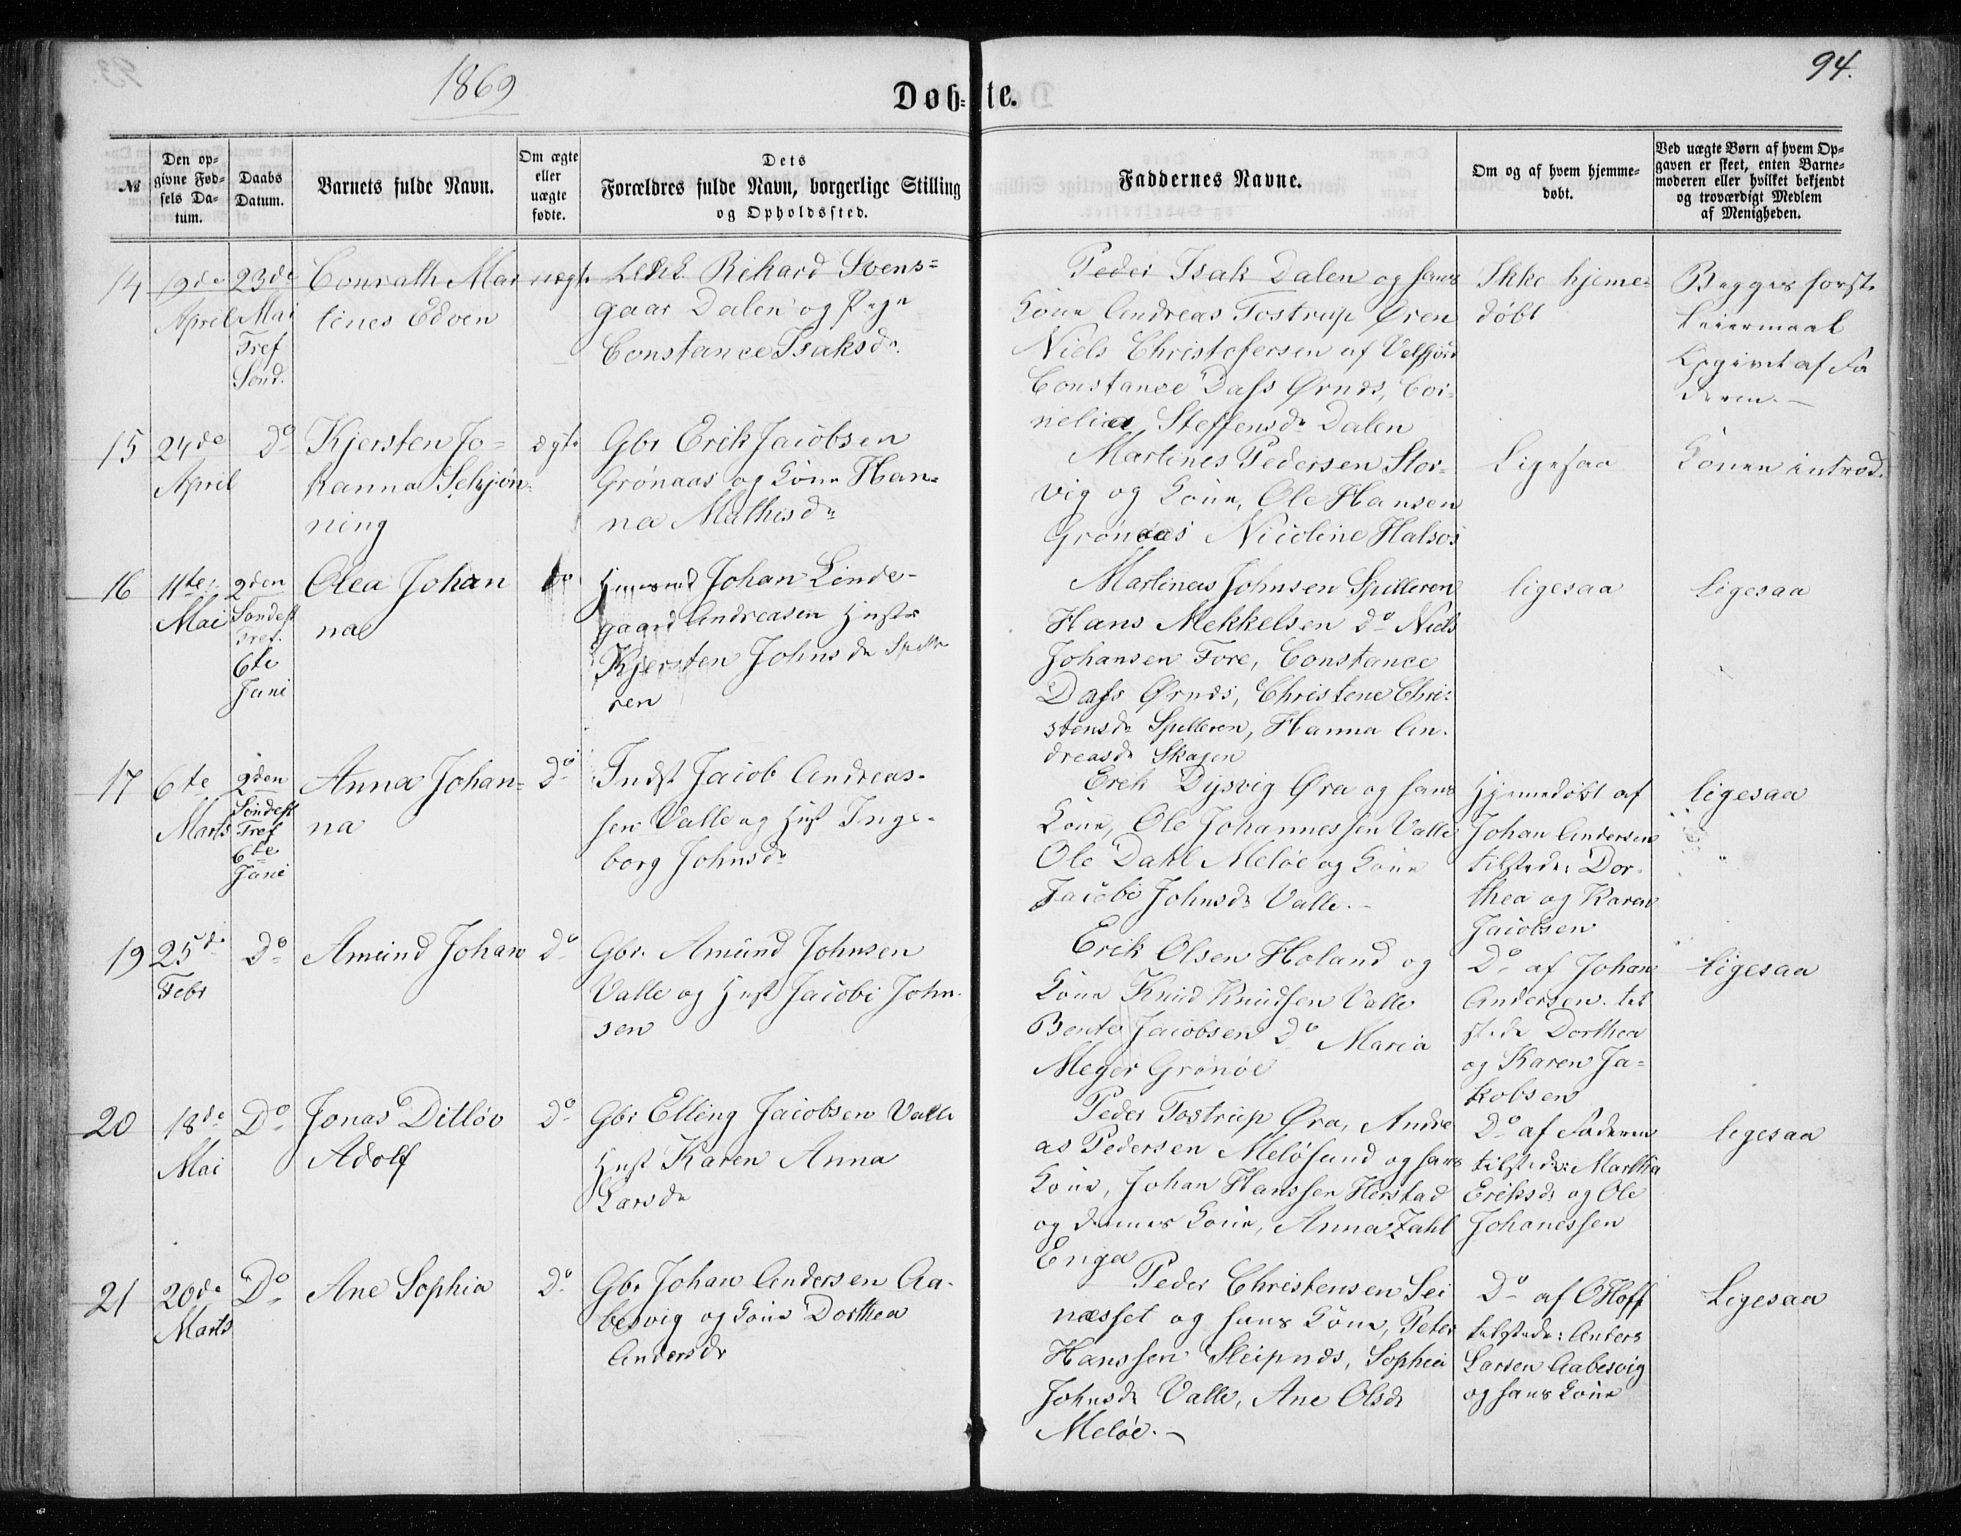 1869
Døb=
te.
94.
№
Den op-
givne Fød-
sels Da-
tum.
Daabs
Datum.
Barnets fulde Navn.
Om ægte
eller
uægte
fødte.
Dets
Forældres fulde Navn, borgerlige Stilling
og Opholdssted.
Faddernes Navne.
Om og af hvem hjemme-
døbt.
Ved uægte Børn af hvem Op-
gaven er skeet, enten Barne-
moderen eller hvilket bekjendt
og troværdigt Medlem
af Menigheden.
14
19de
April
23de
Mai
Tref
Sønd.
Conrath Mar
tines Edven
uægt.
Rikard Svens=
gaar Dalen og Pige
Constance Isaksdr.
Peder Isak Dalen og hans
Kone Andreas Tostrup Øren
Niels Christofersen af Velfjord
Constance Dass Ørnes, Cor-
nelia Steffensdr Dalen
Ikke hjeme-
døbt
Begges første
Leiermaal
Opgivet af Fa
deren.—
15
24de
April
Do
Kjersten Jo-
hanna Schjøn-
ning
ægte
Gbr Erik Jacobsen
Grønaas og Kone Han-
na Mathisdr
Martines Pedersen Stor-
vig og Kone, Ole Hansen
Grønaas Nicoline Halsos
Ligesaa
Konen introd.
16
11te
Mai
2den
Søndest
Tref.
6te
Juni
Olea Johan
na
do
Huusmd Johan Linde-
gaard Andreasen Hustr
Kjersten Johnsdr Spille
ren
Martines Johnsen Spilleren
Hans Mekkelsen do Niels
Johansen Fore, Constance
Dass Ørnes, Christene Chri-
stensdr Spilleren, Hanna An-
dreasdr Skajen
ligesaa
Ligesaa
17
6te
Marts
2den
Søndest
Tref
6te
Juni
Anna Johan=
na
Do
Indst Jacob Andreas-
sen Valle og Hust Inge-
borg Johnsdr
Erik Dysvig Øra og hans
Kone, Ole Johannessen Valle
Ole Dahl Meløe og Kone
Jacobi Johnsdr Valle.—
Hjemmedøbt af
Johan Andersen
tilstede: Dor-
thea og Karen
Jacobsen
ligesaa
19
25de
Febr
Do
Amund Johan
Do
Gbr. Amund Johnsen
Valle og Hust Jacobi John-
sen
Erik Olsen Holand og
Kone Knud Knudsen Valle
Bente Jacobsen Do Maria
Meyer Grønøe
Do af Johan
Andersen. til
stede Dorthea
og Karen Ja-
kobsen
Ligesaa
20
18de
Mai
Do
Jonas Ditløv
Adolf
Do
Gbr Elling Jacobsen Valle
Hust Karen Anna
Larsdr
Peder Tostrup Øra, Andre
as Pedersen Meløsund og hans
Kone, Johan Hanssen Herstad
og dennes Kone, Anna Zahl
Enga
Do af Faderen
tilstede: Martha
Eriksdr og Ole
Johanessen
ligesaa
21
20de
Marts
Do
Ane Sophia
Do
Gbr Johan Andersen Aa-
besvig og Kone Dorthea
Andersdr
Peder Christensen Sei
næsset og hans Kone, Peter
Hanssen Sleipnes, Sophia
Johnsdr Valle, Ane Olsdr
Meløe.—
Do af O Hoff
tilstede: Anders
Larsen Aabesvig
og hans Kone
Ligesaa